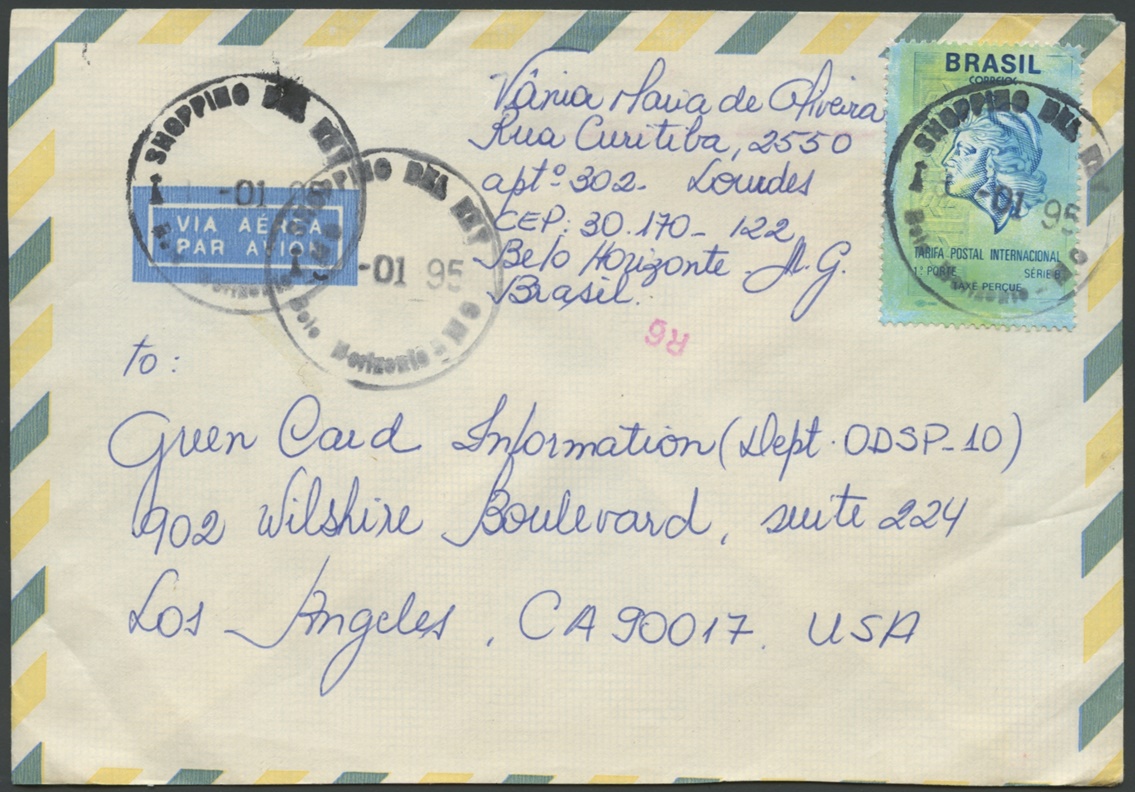 Vânia Maria de Oliveira
Rua Curitiba, 2550
aptº 302- Lourdes
CEP: 30.170-122
Belo Horizonte - M.G.
Brasil.
BRASIL
CORREIOS
TARIFA POSTAL INTERNACIONAL
1º PORTE SÉRIE B
TAXE PERÇUE
SHOPPING DEL REY
-01 95
Belo Horizonte - MG
SHOPPING DEL REY
-01
VIA AÉREA
PAR AVION
Horizonte
SHOPPING DEL REY
-01 95
Belo Horizonte - MG
R6
to:
Green Card Information (Dept. ODSP-10)
902 Wilshire Boulevard, suite 224
Los Angeles, CA 90017. USA